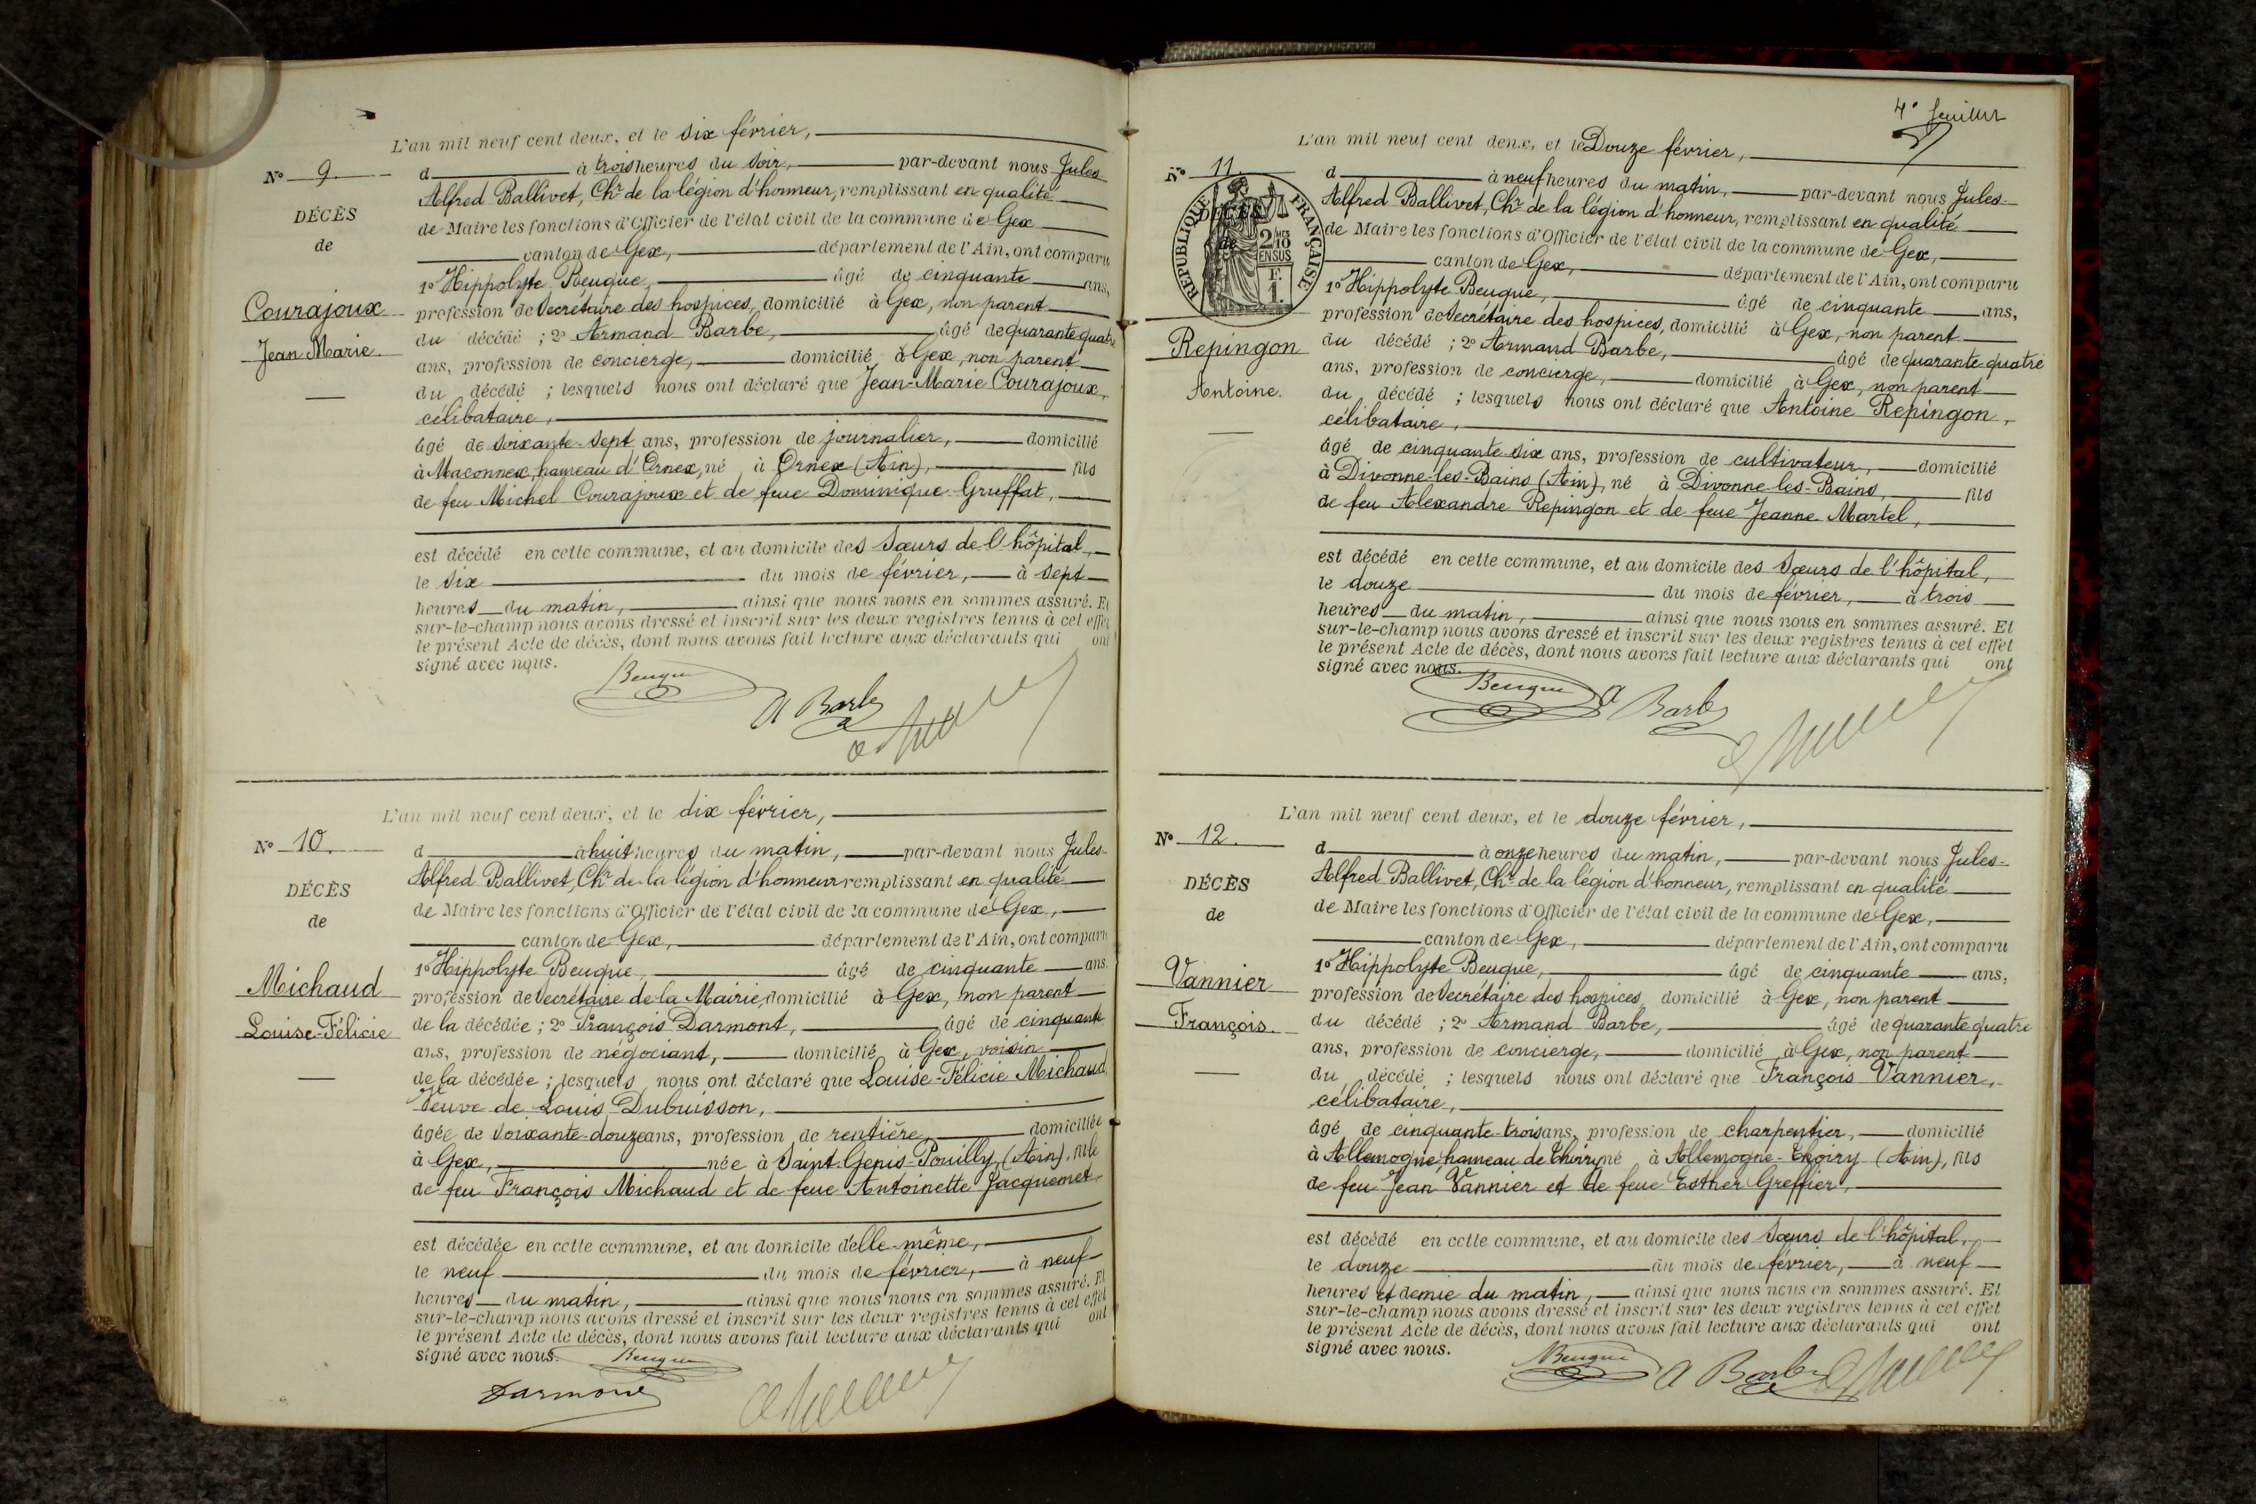 L'an mil neuf cent deux, et le six février,
N° 9.
d à trois heures du soir, par-devant nous Jules-
Alfred Ballivet, Chr de la légion d'honneur, remplissant en qualité
DÉCÈS
de Maire les fonctions d'Officier de l'état civil de la commune de Gex
de
canton de Gex, département de l'Ain, ont comparu
1° Hippolyte Beugue, âgé de cinquante ans,
Courajoux
profession de Secrétaire des hospices, domicilié à Gex, non parent
du décédé ; 2° Armand Barbe, âgé de quarante quatre
Jean Marie.
ans, profession de concierge, domicilié à Gex, non parent
du décédé ; lesquels nous ont déclaré que Jean-Marie Courajoux,
célibataire,
âgé de soixante-sept ans, profession de journalier, domicilié
à Maconnex, hameau d'Ornex, né à Ornex (Ain), fils
de feu Michel Courajoux et de feue Dominique Gruffat,
est décédé en cette commune, et au domicile des Sœurs de l'hôpital,
le six du mois de février, à sept
heures du matin, ainsi que nous nous en sommes assuré. Et
sur-le-champ nous avons dressé et inscrit sur les deux registres tenus à cet effet
le présent Acte de décès, dont nous avons fait lecture aux déclarants qui ont
signé avec nous.
Beugue
A Barbe
L'an mil neuf cent deux, et le dix février,
N° 10.
d à huit heures du matin, par-devant nous Jules-
Alfred Ballivet, Chr de la légion d'honneur remplissant en qualité
DÉCÈS
de Maire les fonctions d'Officier de l'état civil de la commune de Gex,
de
canton de Gex, département de l'Ain, ont comparu
1° Hippolyte Beugue, âgé de cinquante ans.
Michaud
profession de Secrétaire de la Mairie, domicilié à Gex, non parent
Louise-Félicie
de la décédée ; 2° François Darmont, âgé de cinquante
ans, profession de négociant, domicilié à Gex, voisin
de la décédée ; lesquels nous ont déclaré que Louise-Félicie Michaud
Veuve de Louis Dubuisson,
âgée de soixante-douze ans, profession de rentière, domiciliée
à Gex, née à Saint-Genis-Pouilly, (Ain), fille
de feu François Michaud et de feue Antoinette Jacquemet,
est décédée en cette commune, et au domicile d'elle-même,
le neuf du mois de février, à neuf
heures du matin, ainsi que nous nous en sommes assuré. Et
sur-le-champ nous avons dressé et inscrit sur les deux registres tenus à cet effet
le présent Acte de décès, dont nous avons fait lecture aux déclarants qui ont
signé avec nous.
Beugue
Darmont
4e feuillet
L'an mil neuf cent deux, et le Douze février,
N° 11.
d à neuf heures du matin, par-devant nous Jules-
Alfred Ballivet, Chr de la légion d'honneur, remplissant en qualité
DÉCÈS
de Maire les fonctions d'Officier de l'état civil de la commune de Gex,
de
RÉPUBLIQUE FRANÇAISE
2/10 MES
EN SUS
F.
1.
canton de Gex, département de l'Ain, ont comparu
1° Hippolyte Beugue, âgé de cinquante ans,
profession de Secrétaire des hospices, domicilié à Gex, non parent
Repingon
du décédé ; 2° Armand Barbe, âgé de quarante-quatre
ans, profession de concierge, domicilié à Gex, non parent
Antoine.
du décédé ; lesquels nous ont déclaré que Antoine Repingon,
célibataire,
âgé de cinquante-six ans, profession de cultivateur, domicilié
à Divonne-les-Bains (Ain), né à Divonne-les-Bains, fils
de feu Alexandre Repingon et de feue Jeanne Martel,
est décédé en cette commune, et au domicile des Sœurs de l'hôpital,
le douze du mois de février, à trois
heures du matin, ainsi que nous nous en sommes assuré. Et
sur-le-champ nous avons dressé et inscrit sur les deux registres tenus à cet effet
le présent Acte de décès, dont nous avons fait lecture aux déclarants qui ont
signé avec nous.
Beugue
A Barbe
L'an mil neuf cent deux, et le douze février,
N° 12.
d à onze heures du matin, par-devant nous Jules-
Alfred Ballivet, Chr de la légion d'honneur, remplissant en qualité
DÉCÈS
de Maire les fonctions d'Officier de l'état civil de la commune de Gex,
de
canton de Gex, département de l'Ain, ont comparu
1° Hippolyte Beugue, âgé de cinquante ans,
Vannier
profession de Secrétaire des hospices, domicilié à Gex, non parent
François.
du décédé ; 2° Armand Barbe, âgé de quarante quatre
ans, profession de concierge, domicilié à Gex, non parent
du décédé ; lesquels nous ont déclaré que François Vannier,
célibataire,
âgé de cinquante-trois ans, profession de charpentier, domicilié
à Allemogne, hameau de Thoiry, né à Allemogne-Thoiry (Ain), fils
de feu Jean Vannier et de feue Esther Greffier,
est décédé en cette commune, et au domicile des Sœurs de l'hôpital,
le douze du mois de février, à neuf
heures et demie du matin, ainsi que nous nous en sommes assuré. Et
sur-le-champ nous avons dressé et inscrit sur les deux registres tenus à cet effet
le présent Acte de décès, dont nous avons fait lecture aux déclarants qui ont
signé avec nous.
Beugue
A Barbe